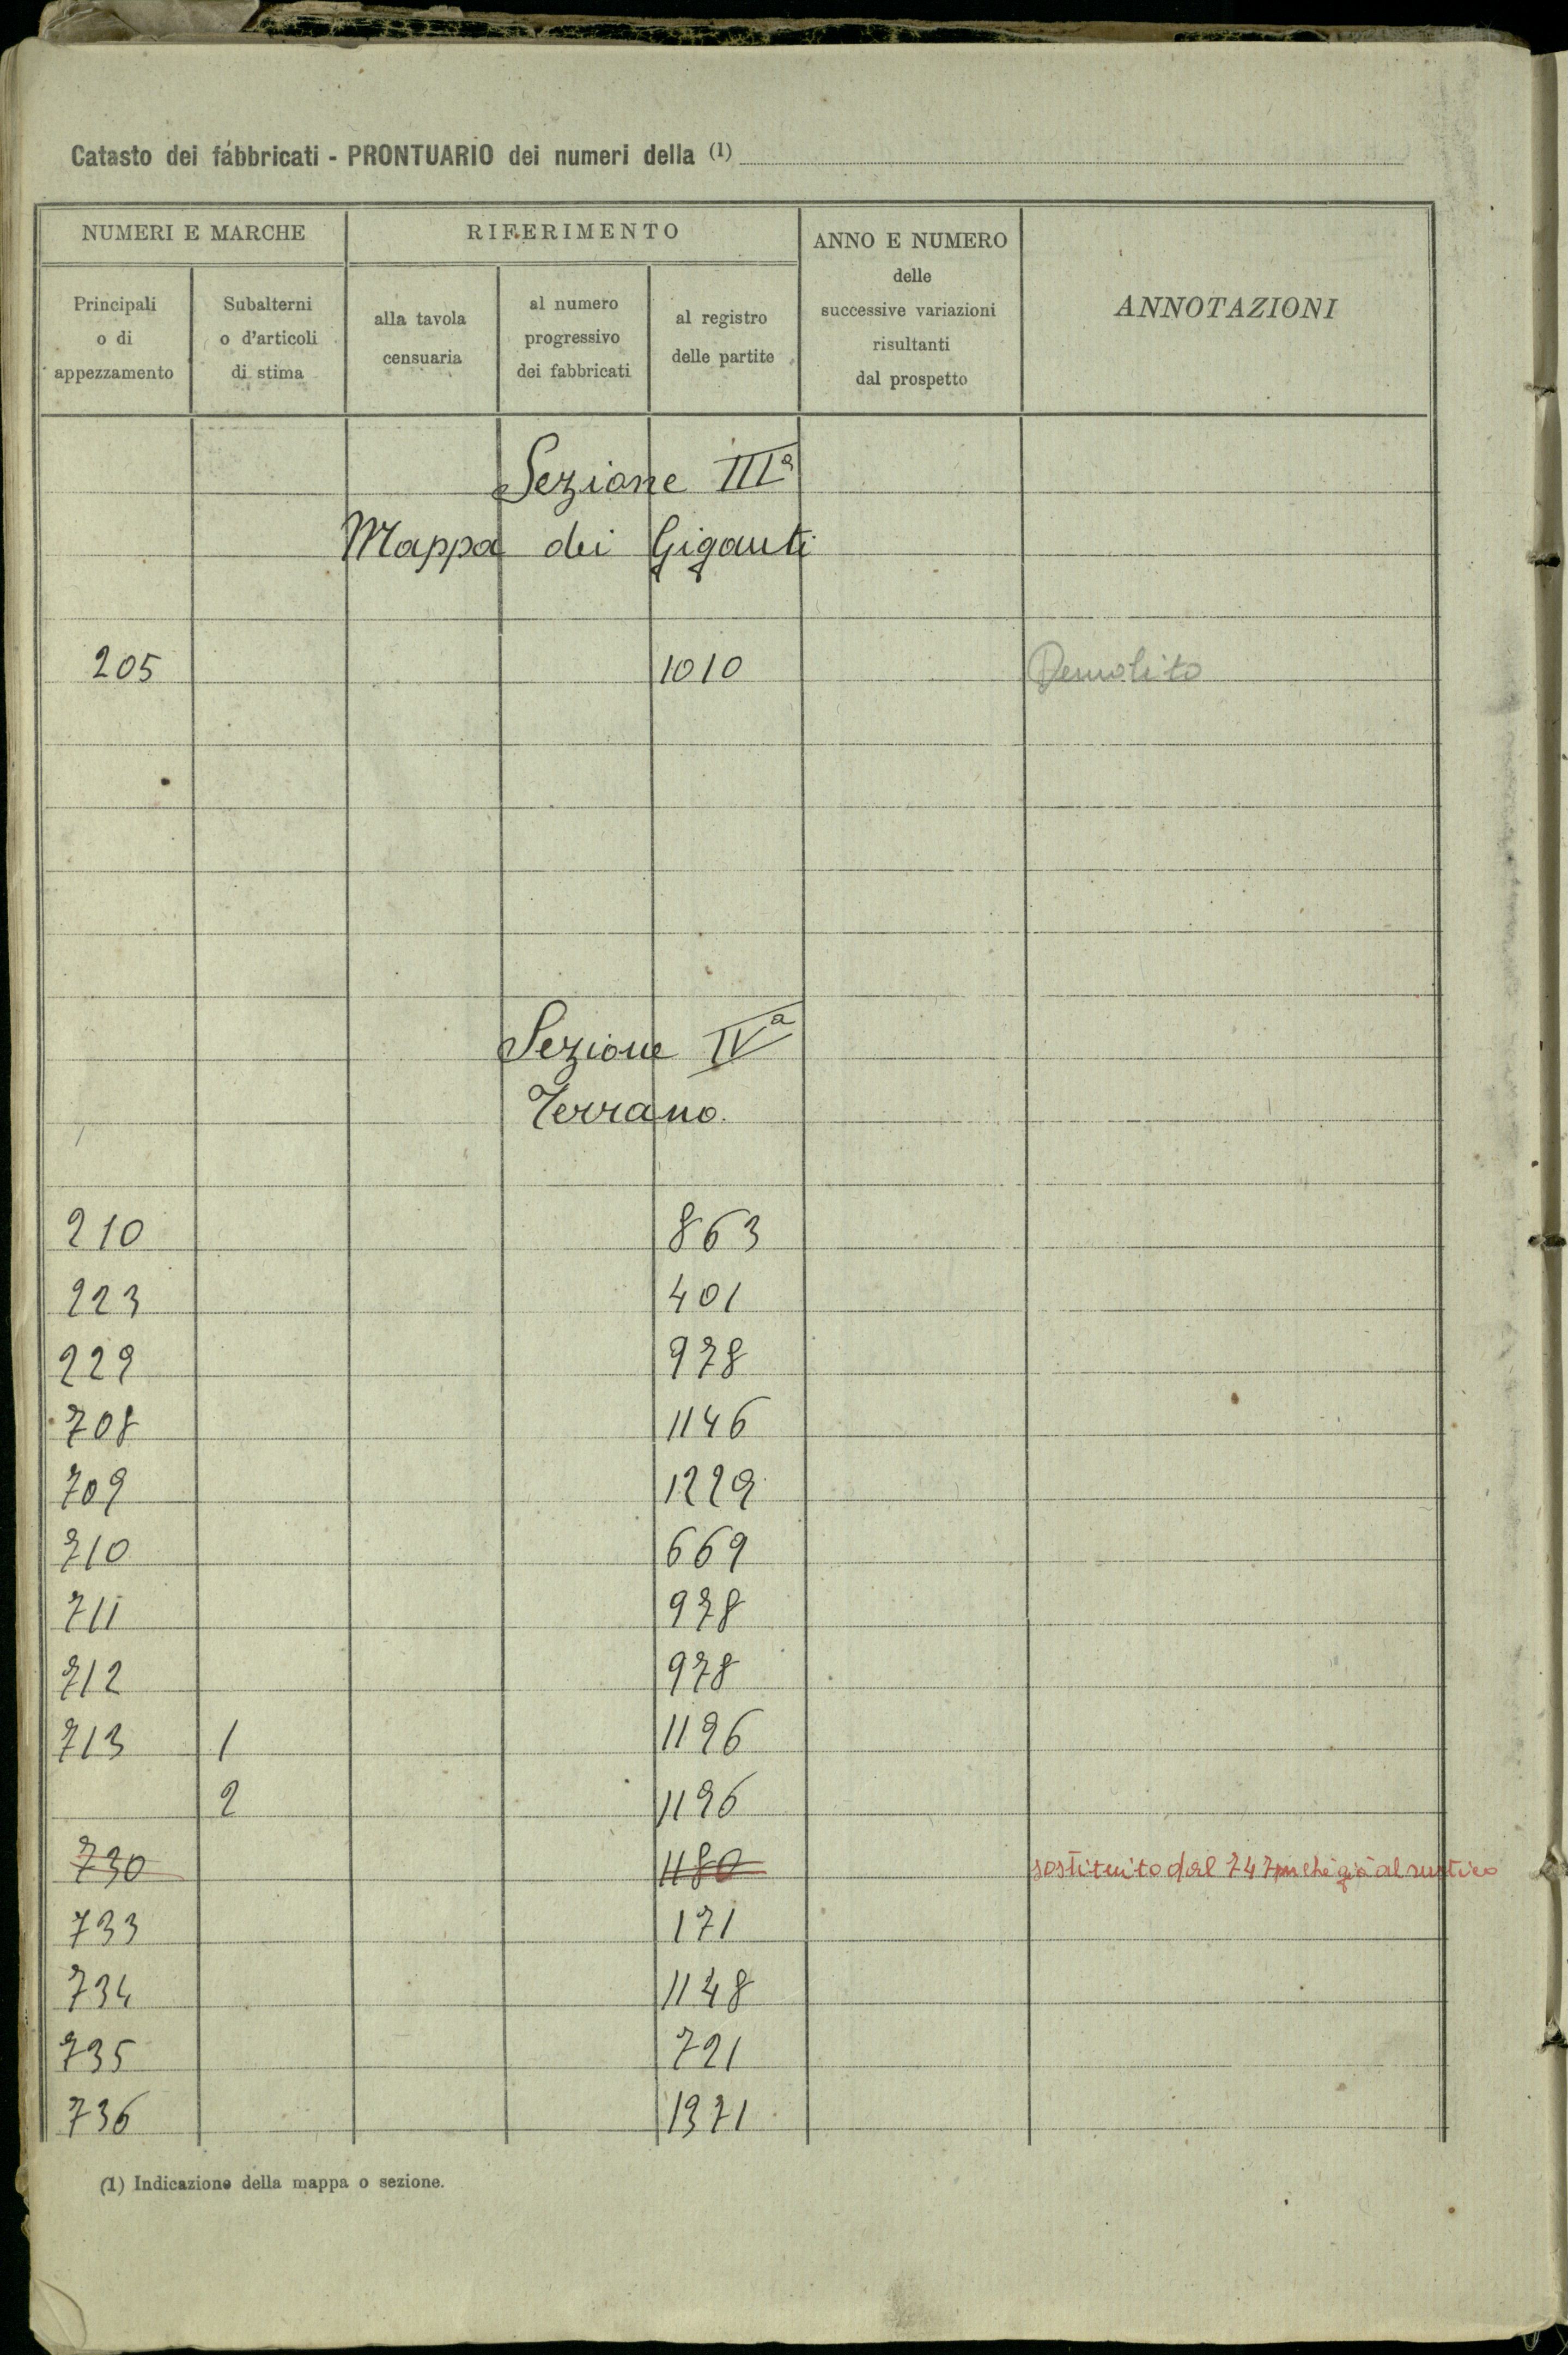 Catasto dei fabbricati - PRONTUARIO dei numeri della (1)
NUMERI E MARCHE
RIFERIMENTO
ANNO E NUMERO
delle
successive variazioni
risultanti
dal prospetto
ANNOTAZIONI
Principali
o di
appezzamento
Subalterni
o d'articoli
di stima
alla tavola
censuaria
al numero
progressivo
dei fabbricati
al registro
delle partite
Sezione IIIa
Mappa dei Giganti
205 1010 Demolito
Sezione IVa
Terrano.
210 863
223 401
229 978
708 1146
709 1229
710 669
711 978
712 978
713 1 1196
2 1196
730 1180 sostituito dal 747 già al rustico
733 171
734 1148
735 721
736 1371
(1) Indicazione della mappa o sezione.